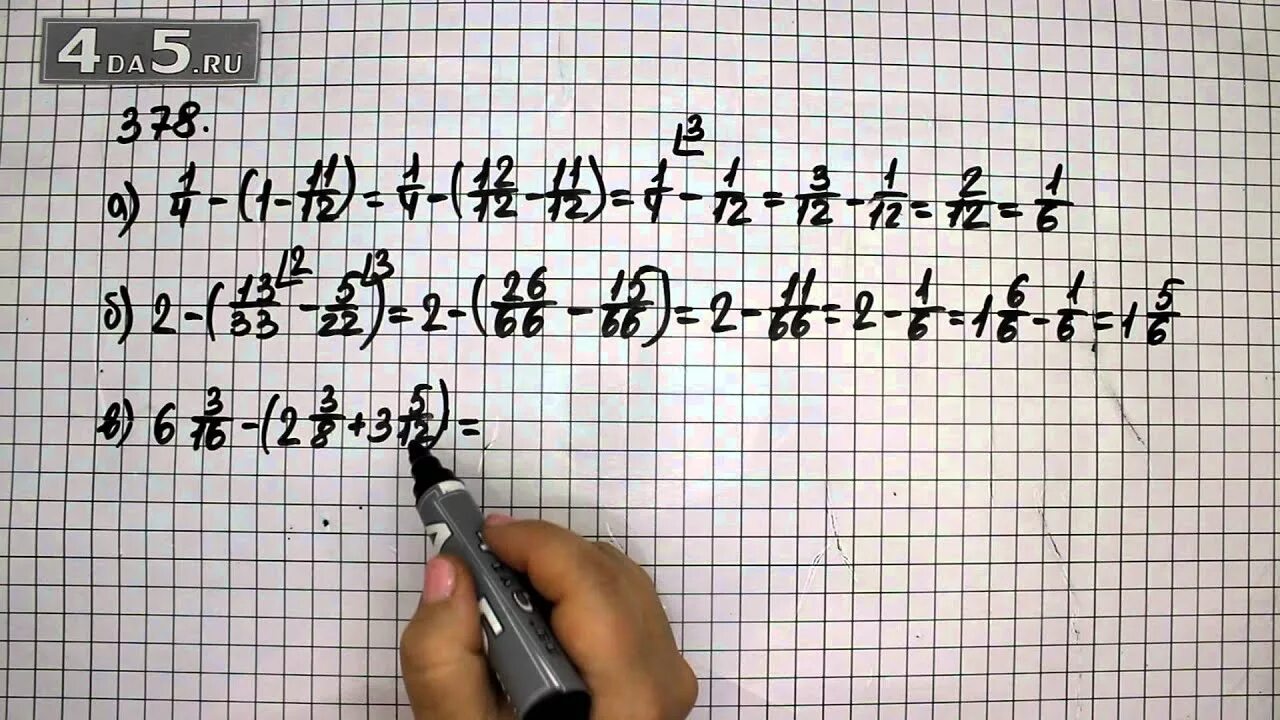 4DA5.RU
378.
а) 1/4 - (1 - 11/12) = 1/4 - (12/12 - 11/12) = 1/4 ⌊3 - 1/12 = 3/12 - 1/12 = 2/12 = 1/6
б) 2 - (13/33 ⌊2 - 5/22 ⌊3) = 2 - (26/66 - 15/66) = 2 - 11/66 = 2 - 1/6 = 1 6/6 - 1/6 = 1 5/6
в) 6 3/16 - (2 3/8 + 3 5/12) =